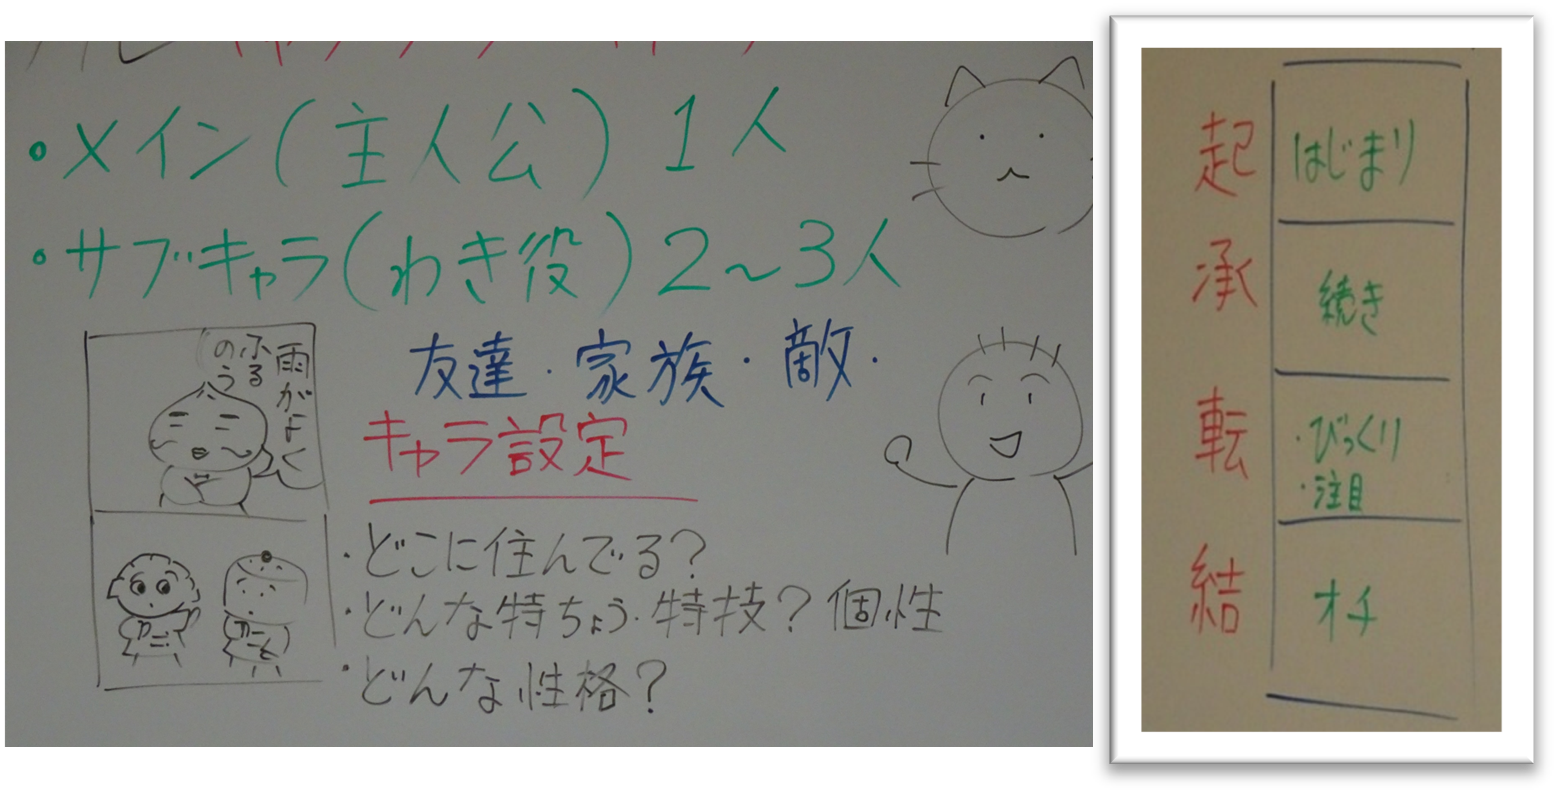 ・メイン(主人公)1人
・サブキャラ(わき役)2〜3人
友達・家族・敵・
キャラ設定
・どこに住んでる?
・どんな特ちょう・特技?個性
・どんな性格?
雨がよく
ふる
のう
起 はじまり
承 続き
転 ・びっくり
・注目
結 オチ